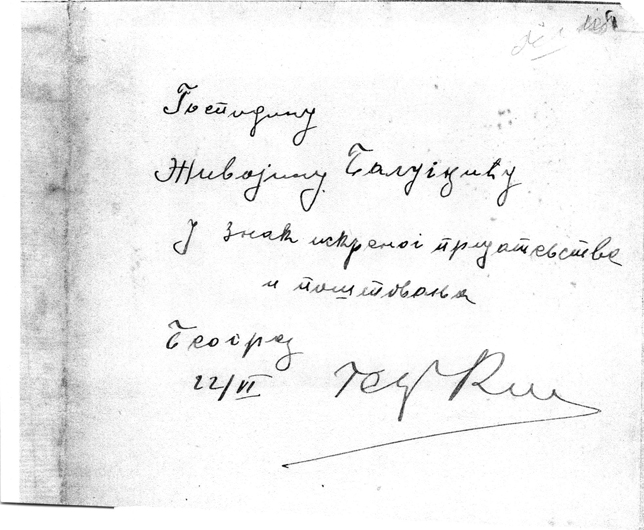 Господину
Живојину Балугџићу
У знак искреног пријатељства
и поштовања
Београд
22/VI